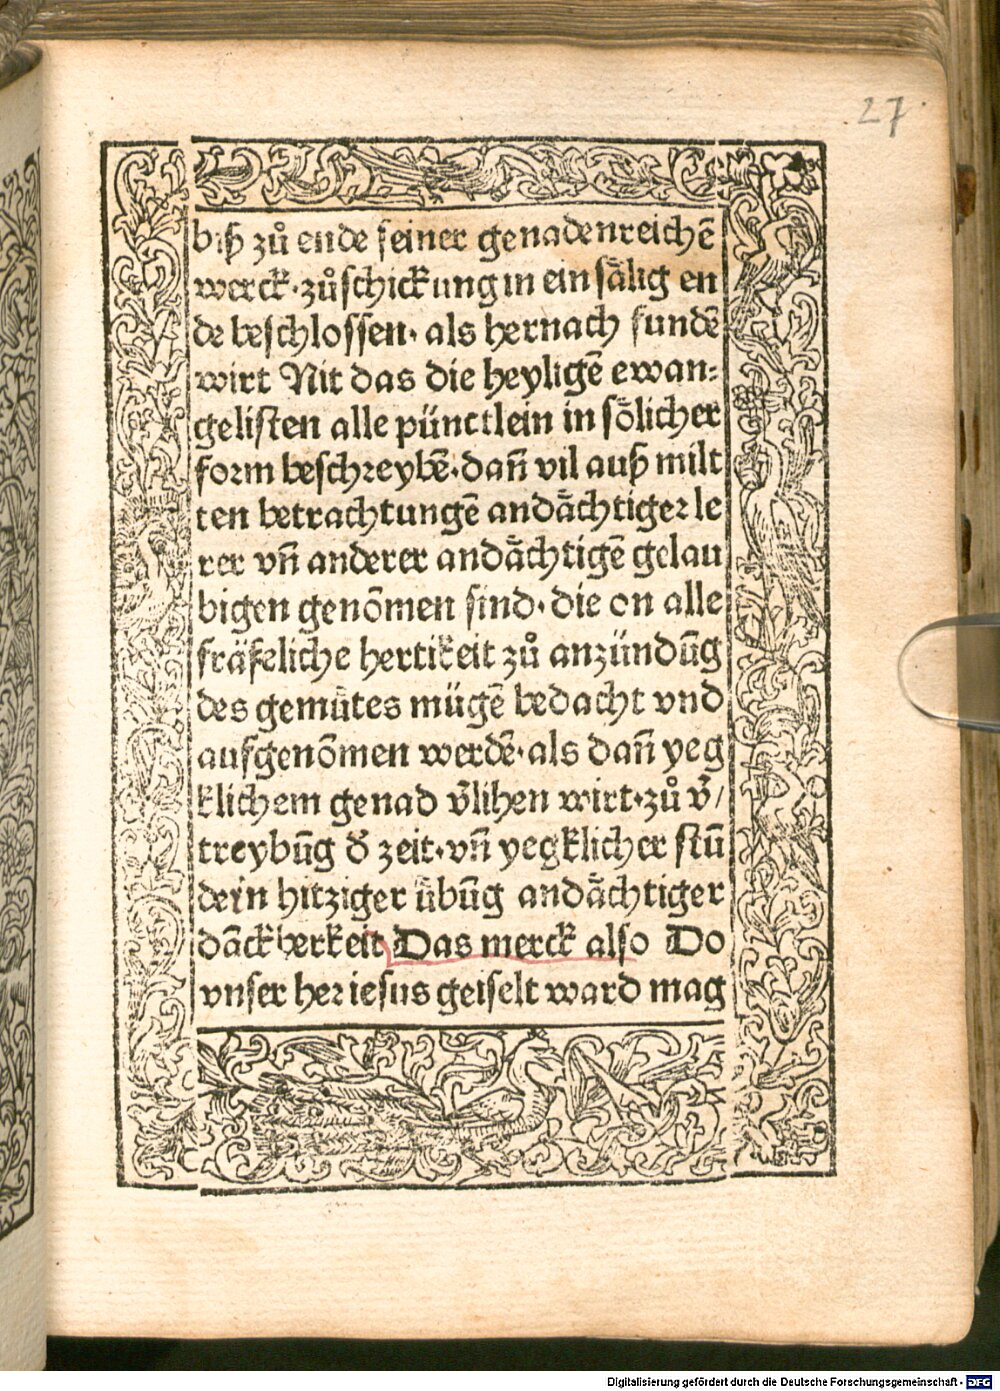 27
biß zů ende seiner genadenreichē
werck·zůschickung in ein sälig en
de beschlossen· als hernach fundē
wirt Nit das die heyligē ewan⸗
gelisten alle pünctlein in sölicher
form beschreybē·dañ vil auß milt
ten betrachtungē andächtiger le
rer vñ anderer andächtigē gelau
bigen genōmen sind·die on alle
fräfeliche hertikeit zů anzündūg
des gemütes mügē bedacht vnd
aufgenōmen werdē·als dañ yeg
klichem genad v̄lihen wirt·zů v̄/
treybūg d̄ zeit·vñ yegklicher stū
dein hitziger übūg andächtiger
dāckberkeit Das merck also Do
vnser her iesus geiselt ward mag
Digitalisierung gefördert durch die Deutsche Forschungsgemeinschaft - DFG